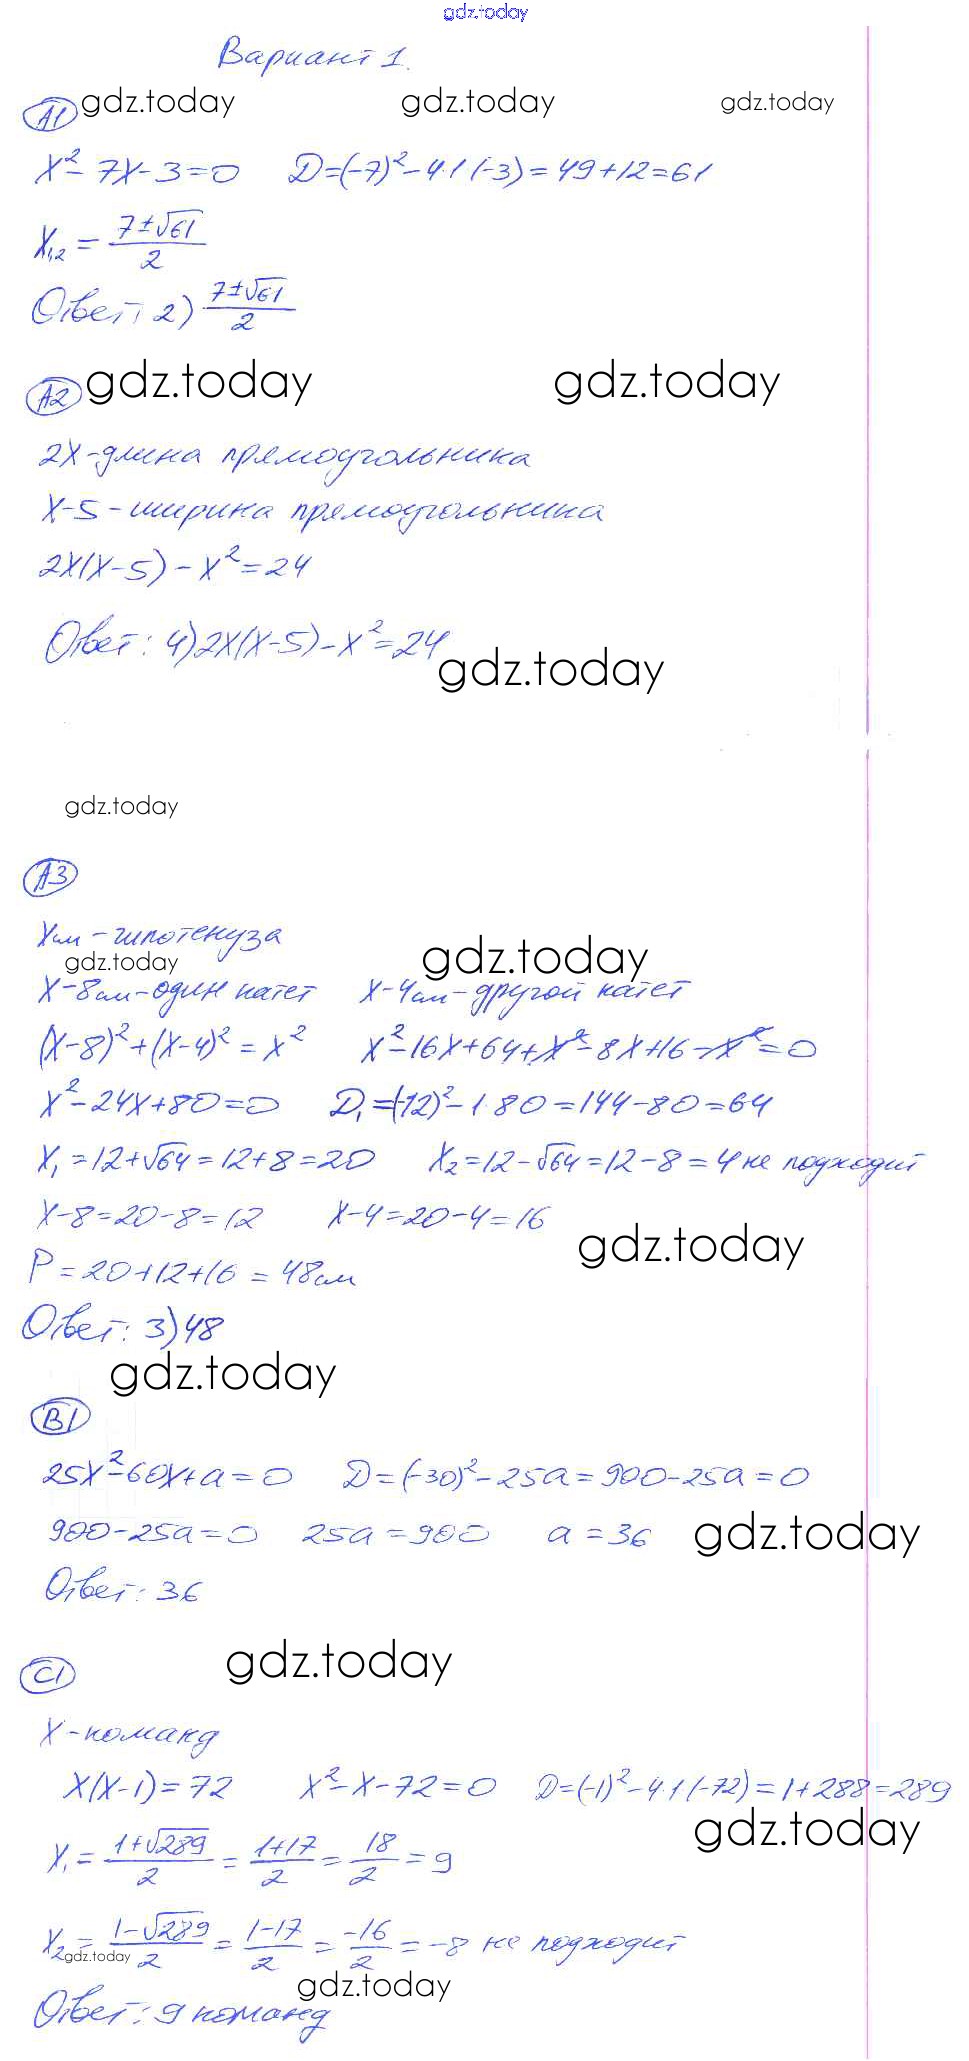 gdz.today
Вариант 1.
А1 gdz.today gdz.today gdz.today
x² - 7x - 3 = 0 D = (-7)² - 4·1·(-3) = 49 + 12 = 61
x₁,₂ = (7 ± √61)/2
Ответ: 2) (7 ± √61)/2
А2 gdz.today gdz.today
2x - длина прямоугольника
x - 5 - ширина прямоугольника
2x(x - 5) - x² = 24
Ответ: 4) 2x(x - 5) - x² = 24
gdz.today
gdz.today
А3
x см - гипотенуза
gdz.today gdz.today
x - 8 см - один катет x - 4 см - другой катет
(x - 8)² + (x - 4)² = x² x² - 16x + 64 + x² - 8x + 16 - x² = 0
x² - 24x + 80 = 0 D₁ = (-12)² - 1·80 = 144 - 80 = 64
x₁ = 12 + √64 = 12 + 8 = 20 x₂ = 12 - √64 = 12 - 8 = 4 не подходит
x - 8 = 20 - 8 = 12 x - 4 = 20 - 4 = 16
gdz.today
P = 20 + 12 + 16 = 48 см
Ответ: 3) 48
gdz.today
В1
25x² - 60x + a = 0 D = (-30)² - 25a = 900 - 25a = 0
900 - 25a = 0 25a = 900 a = 36 gdz.today
Ответ: 36
gdz.today
С1
x - команд
x(x - 1) = 72 x² - x - 72 = 0 D = (-1)² - 4·1·(-72) = 1 + 288 = 289
gdz.today
x₁ = (1 + √289)/2 = (1 + 17)/2 = 18/2 = 9
x₂ = (1 - √289)/2 = (1 - 17)/2 = -16/2 = -8 не подходит
gdz.today
gdz.today
Ответ: 9 команд